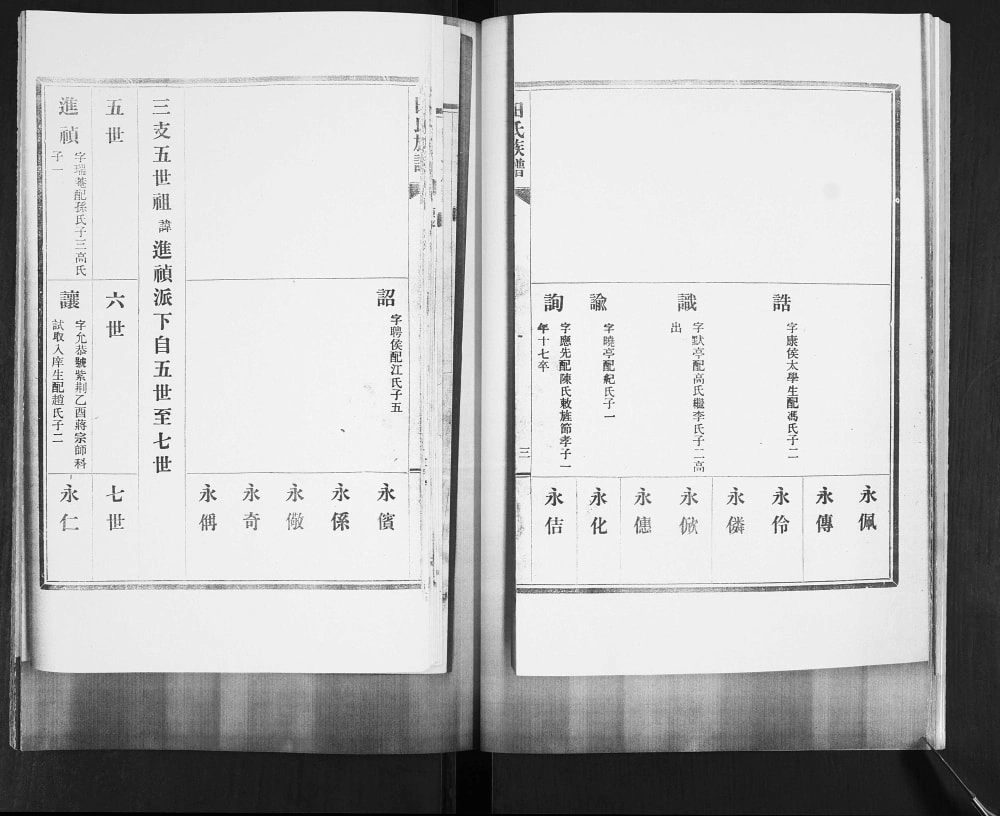 田氏族譜
三
誥
字康侯太學生配馮氏子二
識
字默亭配高氏繼李氏子二高
出
諭
字曉亭配紀氏子一
詢
字應先配陳氏敕旌節孝子一
年十七卒
永佩
永傳
永伶
永僯
永㒜
永僡
永化
永佶
詔
字聘侯配江氏子五
永儐
永係
永儆
永奇
永偁
三支五世祖諱進禎派下自五世至七世
五世
六世
七世
進禎
字瑞菴配孫氏子三高氏
子一
讓
字允恭號紫荆乙酉蔣宗師科
試取入庠生配趙氏子二
永仁